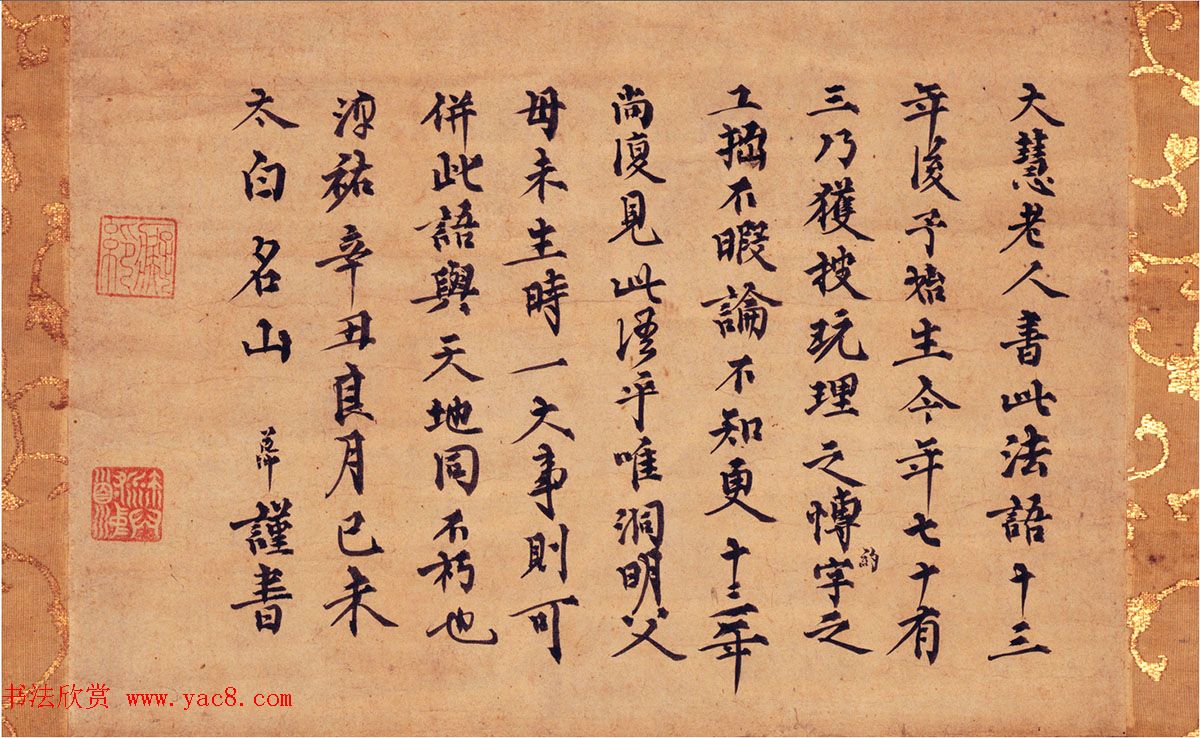 大慧老人書此法語十三
年後予始生今年七十有
三乃獲披玩理之慱字之
的
工拙不暇論不知更十三年
尚復見此語乎唯洞明父
母未生時一大事則可
併此語與天地同不朽也
淳祐辛丑良月已未
太白名山 謹書
书法欣赏 www.yac8.com